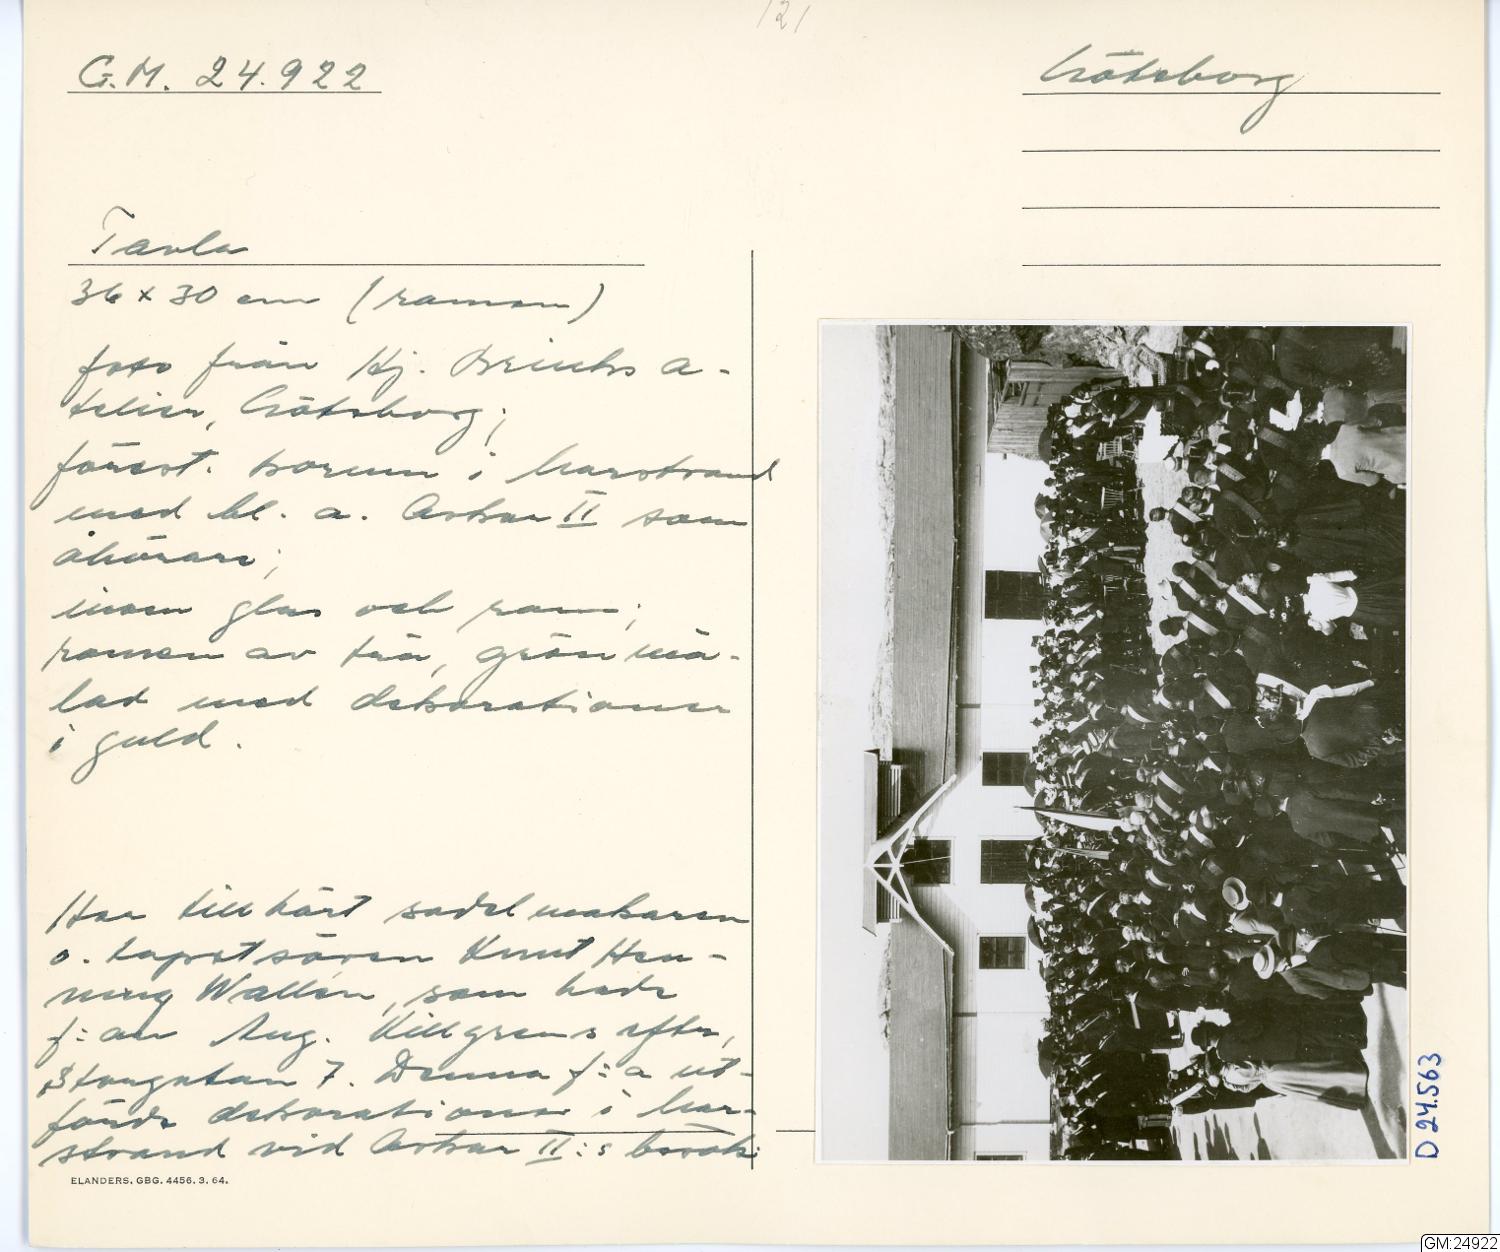 121
G.M. 24.922
Göteborg
Tavla
36 x 30 cm (ramen)
foto från Hj. Brinchs a-
telier, Göteborg;
förest. i Marstrand
med bl. a. Oskar II som
åhörare;
inom glas och ram;
ramen av trä, grönmå-
lad med dekorationer
i guld.
Har tillhört sadelmakaren
o. tapetsören Knut Hen-
ning Wallén, som hade
f:an Aug. Killgrens eftr,
Storgatan 7. Denna f:a ut-
förde dekorationer i Mar-
strand vid Oskar II:s besök.
ELANDERS. GBG. 4456. 3. 64.
D 24.563
GM:24922